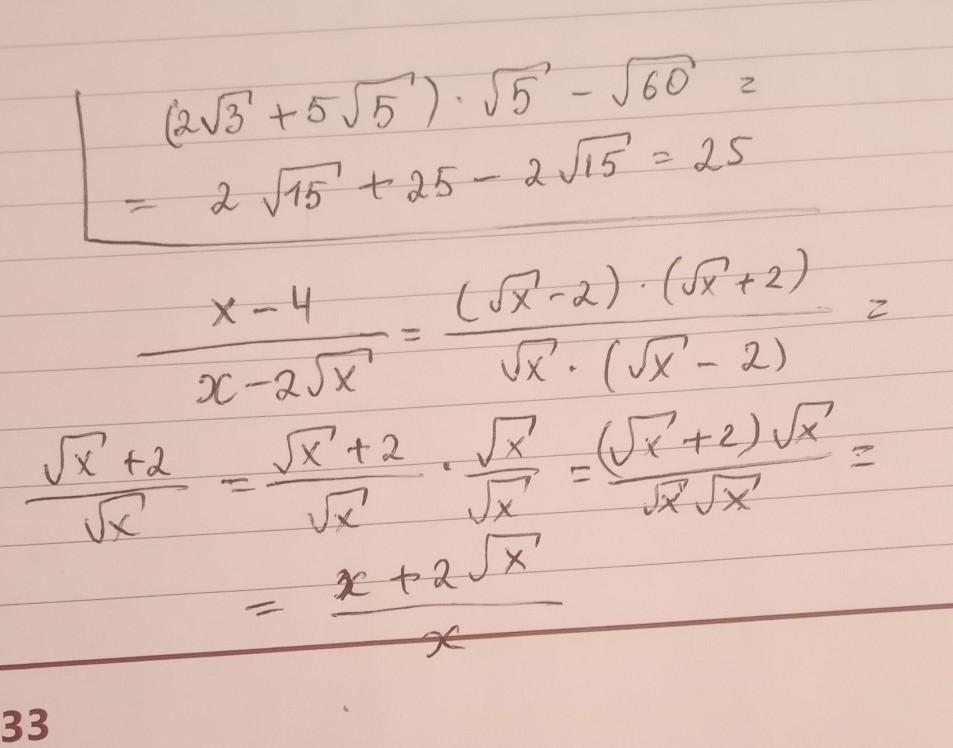 (2√3 + 5√5) · √5 − √60 =
= 2√15 + 25 − 2√15 = 25
(x − 4)/(x − 2√x) = ((√x − 2) · (√x + 2))/(√x · (√x − 2)) =
(√x + 2)/√x = (√x + 2)/√x · √x/√x = ((√x + 2)√x)/(√x√x) =
= (x + 2√x)/x
33